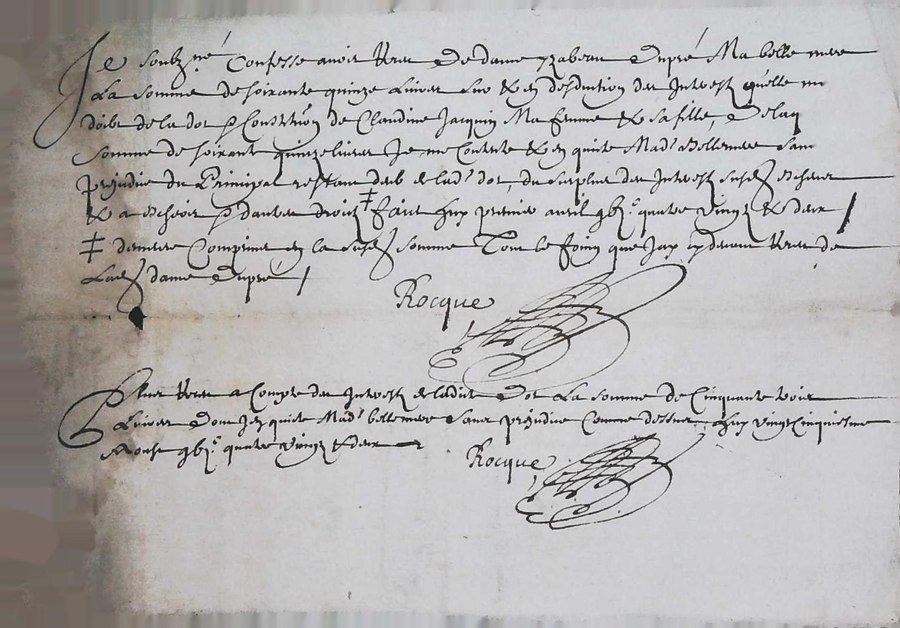 Je soubzne Confesse avoir Receu De dame yzabeau Dupré Ma belle mere
La Somme de soixante quinze Livres sur & en desduction des Interest qu'elle me
doibt de la dot p Constitõn de Claudine Jacquin Ma femme & sa fille, De laq
Somme de soixant quinze livres Je me Contente & en quite Mad. Bellemere sans
prejudice du Principal restant deub de lad. dot, du surplus des Interest susd escheus
& a escheoir p dautres droitz ‡ faict huy premier avril quatre vingtz & deux /
‡ demeure Comprins en la susd somme Tout le foing que Jay cy devant Receu de
Lad dame Dupré /
Rocque
Plus Receu a Compte des Interest de ladite Dot La somme de Cinquante trois
Livres Dont Jen quite Mad. bellemere Sans prejudice Comme dessus. huy vingt Cinquiesme
Aoust quatre vingtz & deux
Rocque